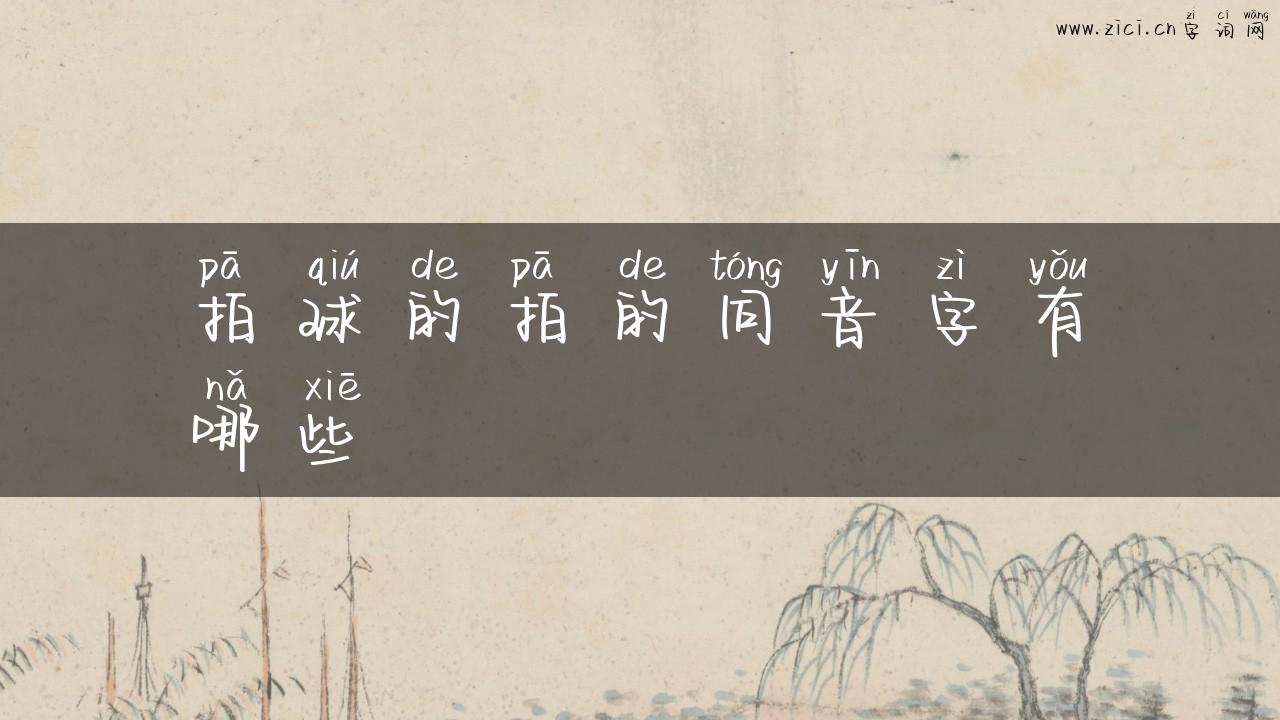 zì cí wǎng
www.zici.cn 字 词 网
pā qiú de pā de tóng yīn zì yǒu
拍 球 的 拍 的 同 音 字 有
nǎ xiē
哪 些